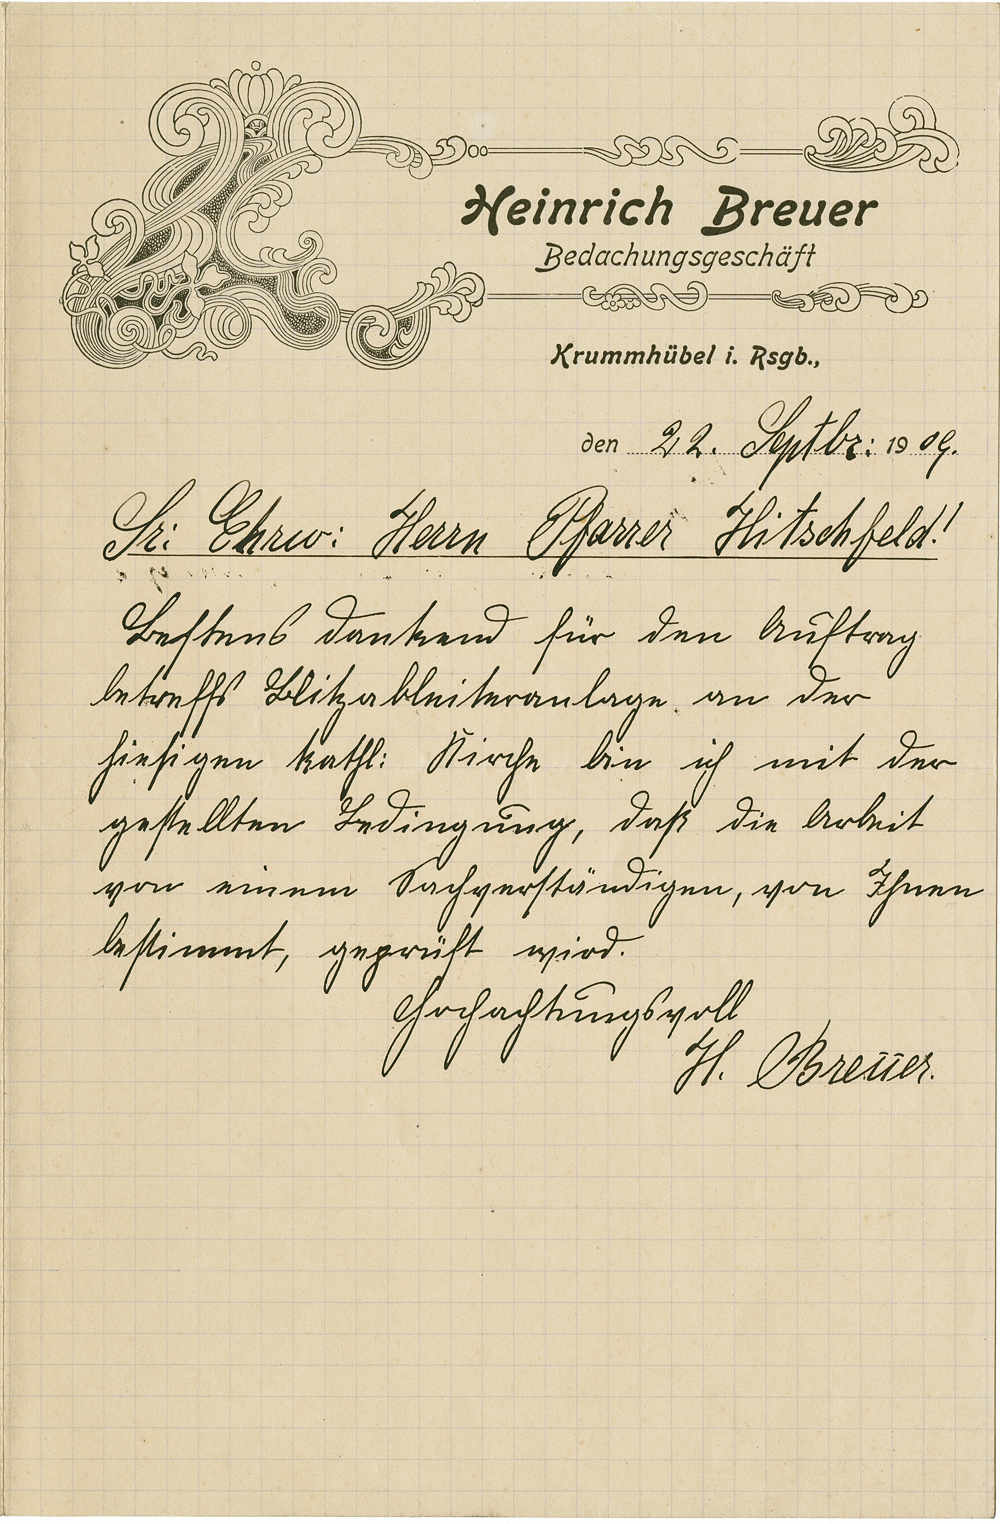 Heinrich Breuer
Bedachungsgeschäft
Krummhübel i. Rsgb.,
den 22. Septbr: 1909.
Sr: Ehrw: Herrn Pfarrer Hitschfeld!
Bestens dankend für den Auftrag
betreffs Blitzableiteranlage an der
hiesigen kathl: Kirche bin ich mit der
gestellten Bedingung, daß die Arbeit
von einem Sachverständigen, von Ihnen
bestimmt, geprüft wird.
Hochachtungsvoll
H. Breuer.